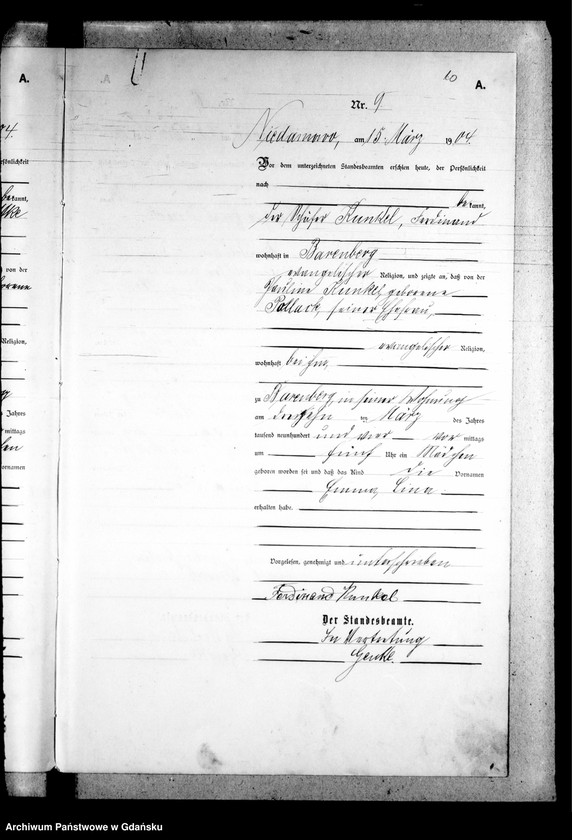 10
A.
Nr. 9
Niedamowo, am 15. März 1904.
Vor dem unterzeichneten Standesbeamten erschien heute, der Persönlichkeit
nach
bekannt,
der Schäfer Kunkel, Ferdinand
wohnhaft in Barenberg
evangelischer Religion, und zeigte an, daß von der
Pauline Kunkel geborene
Pollack, seiner Ehefrau,
evangelischer Religion,
wohnhaft bei ihm,
zu Barenberg in seiner Wohnung
am dreizehn ten März des Jahres
tausend neunhundert und vier vormittags
um fünf Uhr ein Mädchen
geboren worden sei und daß das Kind die Vornamen
Emma, Lina
erhalten habe.
Vorgelesen, genehmigt und unterschrieben
Ferdinand Kunkel
Der Standesbeamte.
In Vertretung
A.
04.
rsönlichkeit
bekannt,
von der
Religion,
Jahres
mittags
Vornamen
Archiwum Państwowe w Gdańsku